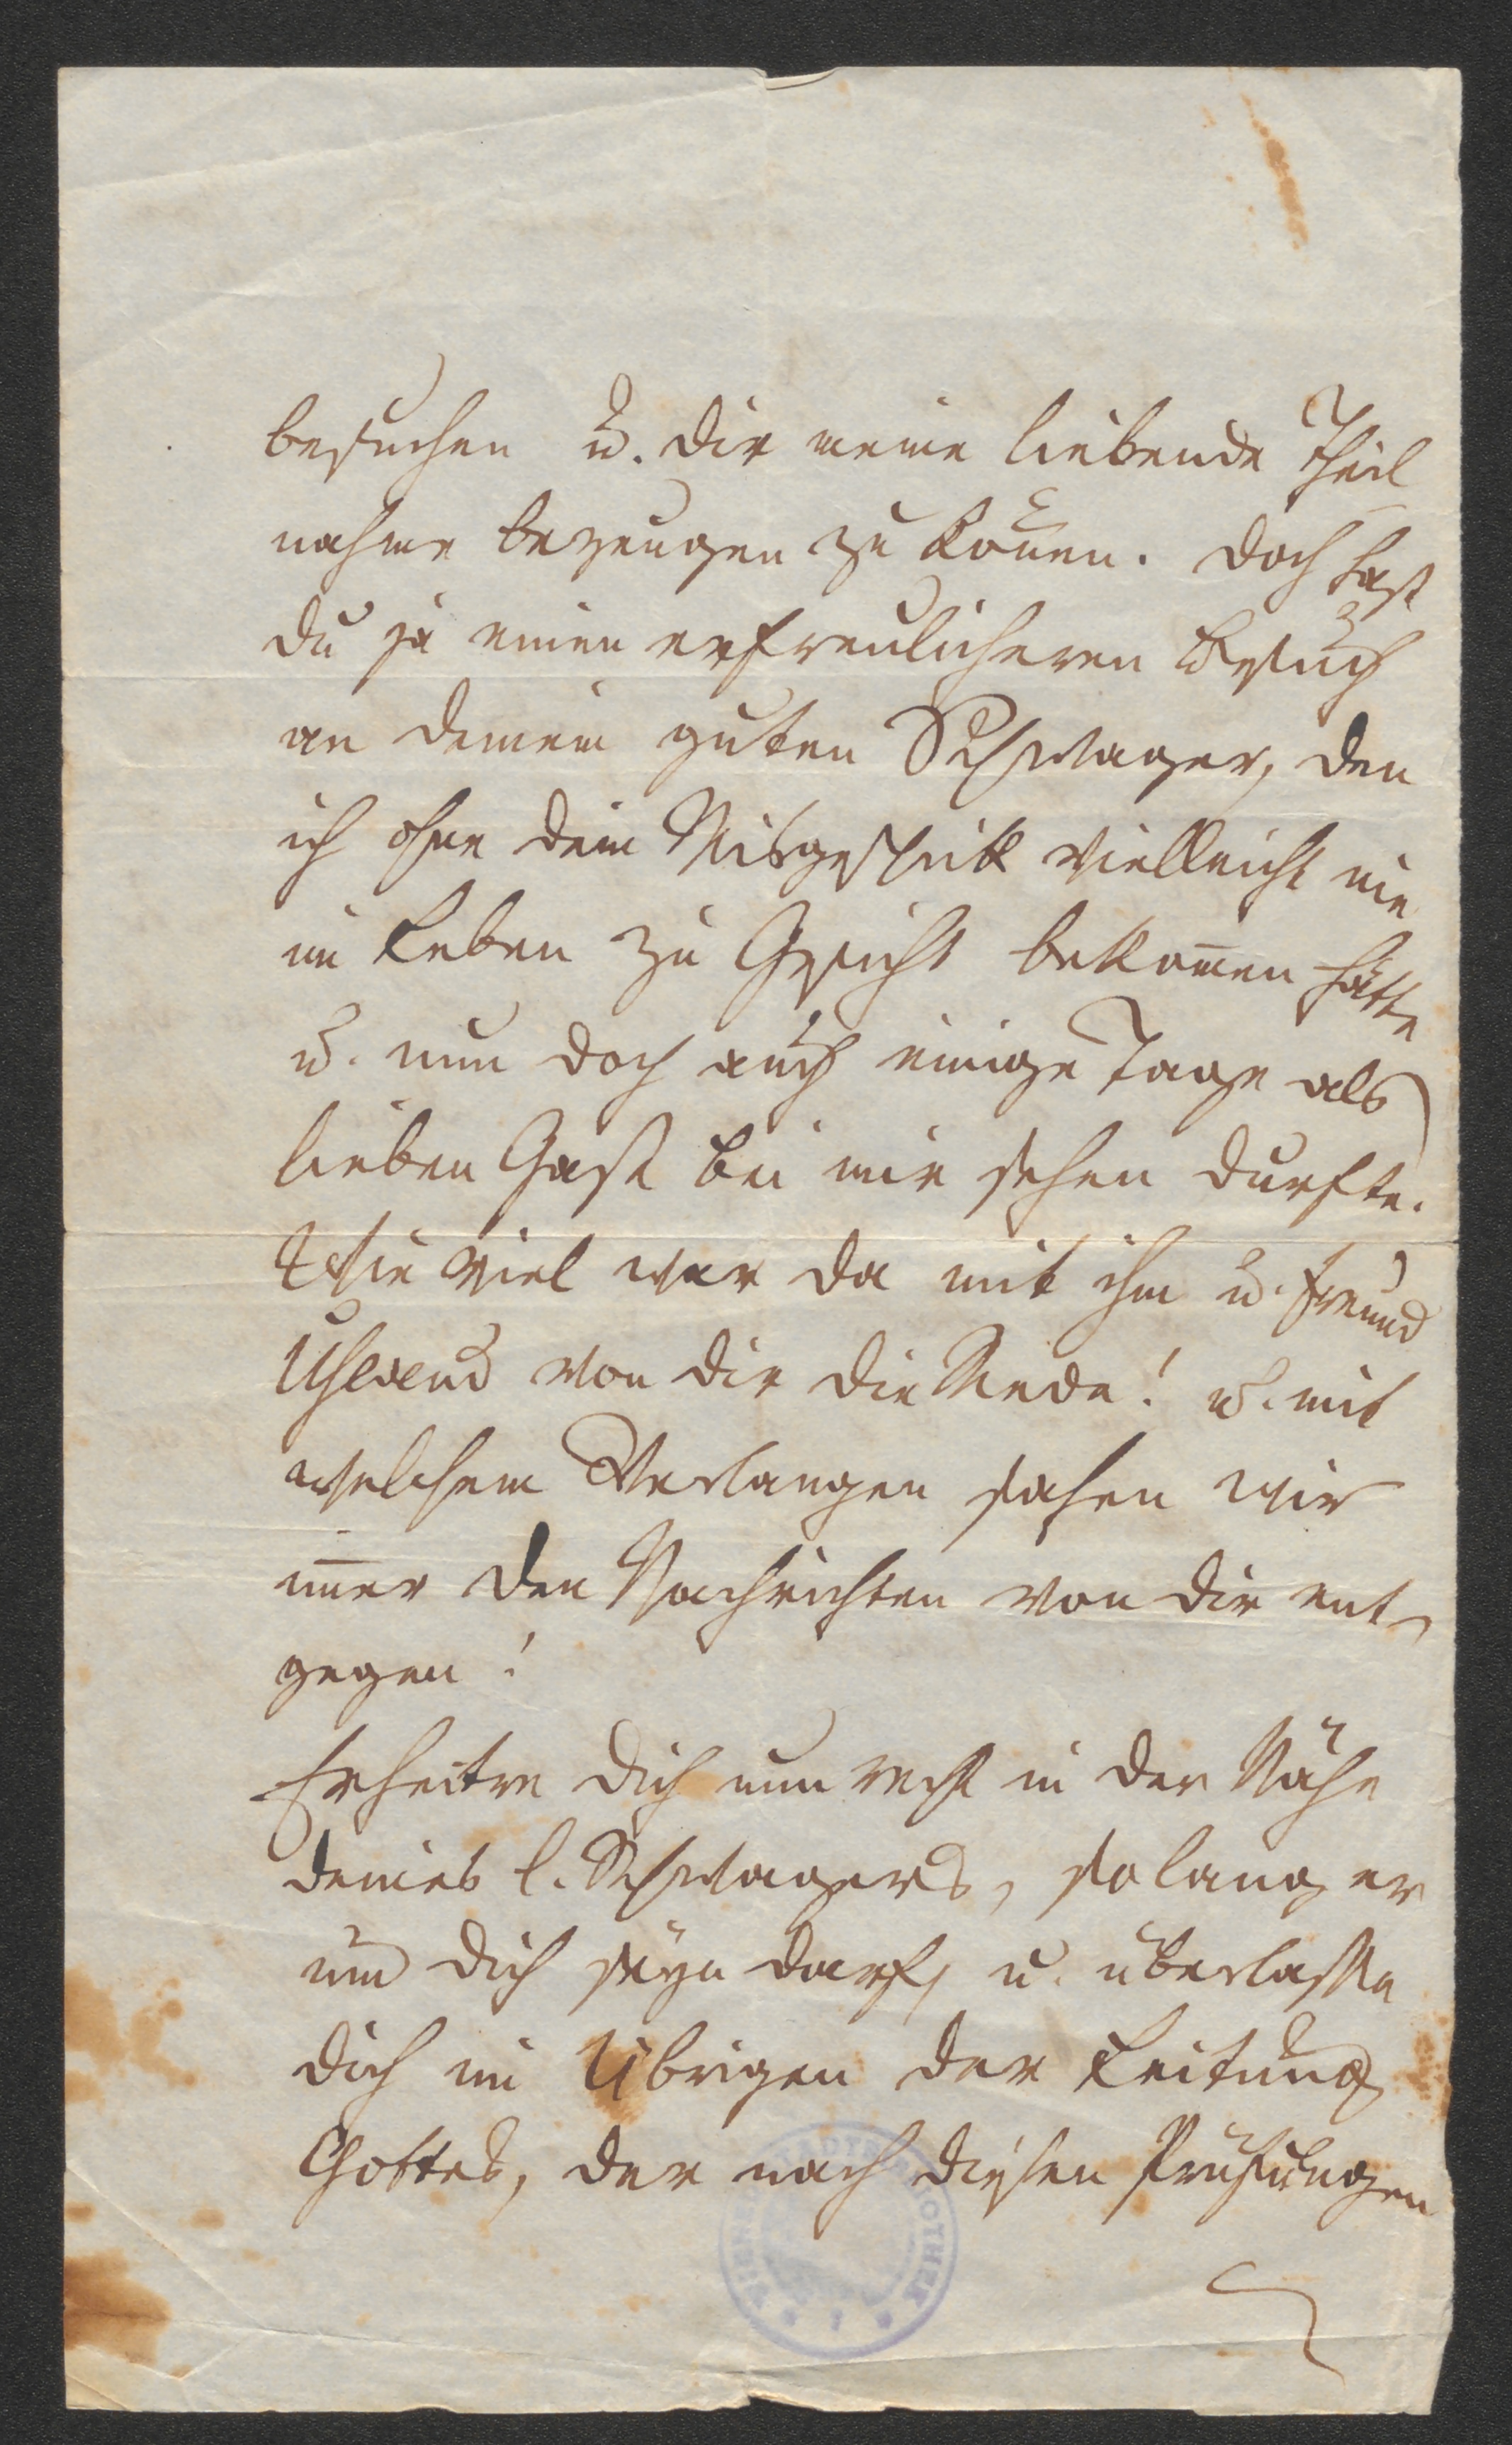 besuchen u. dir meine liebende Theil
nahme bezeugen zu kon̄en. Doch hast
du ja einen erfreulicheren Besuch
an deinem guten Schwager, den
ich ohne dein Misgeschick vielleicht nie
im Leben zu Gesicht bekom̄en hätte
u. nun doch auch einige Tage als
lieben Gast bei mir sehen durfte.
Wie viel war da mit ihm u. Freund
Uhland von dir die Rede! u. mit
welchem Verlangen sahen wir
im̄er den Nachrichten von dir ent-
gegen!
Erheitre dich nun recht in der Nähe
deines l. Schwagers, so lang er
um dich seyn darf, u. überlasse
dich im Übrigen der Leitung
Gottes, der nach diesen Prüfungen